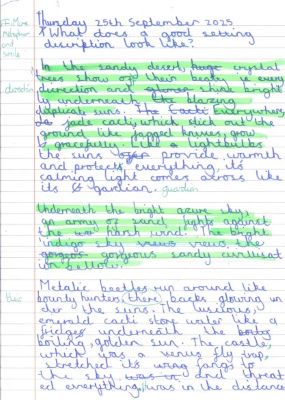 FF: More metaphor and simile
Thursday 25th September 2025
What does a good setting
description look like?
In the sandy desert, huge crystal
trees show off their beaks in every
direction and glows shine bright
ly underneath the blazing
duplicate suns. The cacti Everywhere,
jade cacti, which stick out the
ground like jagged knives, grow
gracefully. Like lightbulbs
the suns provide warmth
and protects everything, its
calming light comes across like
its gardian. guardian
Underneath the bright azure sky,
an army of sand fights against
the harsh wind. The bright
indigo sky views the
gorgeous sandy civilisat
ion bellow.
Metalic beetles run around like
bounty hunters, there backs glowing un
der the suns. The luscious,
emerald cacti store water like a
fridge underneath the
boiling, golden sun. The castle,
which was a venus fly trap,
stretched its fangs to
the sky and threat
ed everything, was in the distance